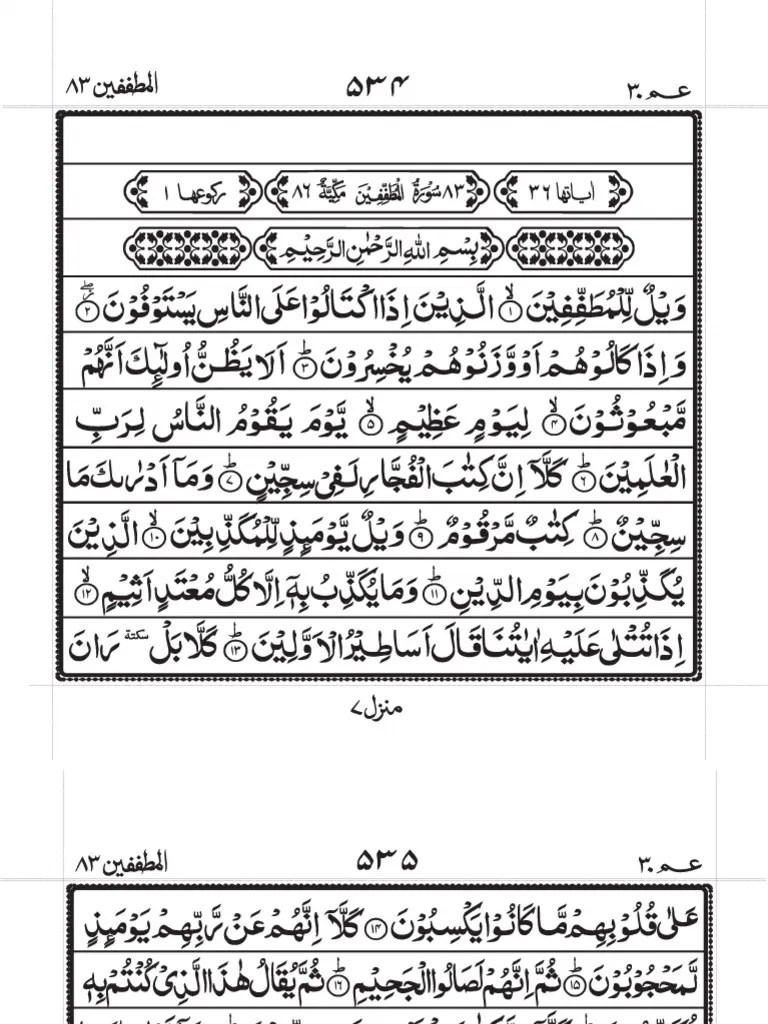 عـم ٣٠ ٥٣٤ المطففين ٨٣
اٰیاتها ٣٦ ٨٣ سُوْرَةُ الْمُطَفِّفِيْنَ مَكِّيَّةٌ ٨٦ رکوعها ١
بِسْمِ اللّٰهِ الرَّحْمٰنِ الرَّحِيْمِ
وَيْلٌ لِّلْمُطَفِّفِيْنَ ۙ﴿١﴾ الَّذِيْنَ اِذَا اكْتَالُوْا عَلَى النَّاسِ يَسْتَوْفُوْنَ ۖ﴿٢﴾
وَاِذَا كَالُوْهُمْ اَوْ وَّزَنُوْهُمْ يُخْسِرُوْنَ ؕ﴿٣﴾ اَلَا يَظُنُّ اُولٰٓئِكَ اَنَّهُمْ
مَّبْعُوْثُوْنَ ۙ﴿٤﴾ لِيَوْمٍ عَظِيْمٍ ۙ﴿٥﴾ يَّوْمَ يَقُوْمُ النَّاسُ لِرَبِّ
الْعٰلَمِيْنَ ؕ﴿٦﴾ كَلَّاۤ اِنَّ كِتٰبَ الْفُجَّارِ لَفِيْ سِجِّيْنٍ ؕ﴿٧﴾ وَمَاۤ اَدْرٰىكَ مَا
سِجِّيْنٌ ؕ﴿٨﴾ كِتٰبٌ مَّرْقُوْمٌ ؕ﴿٩﴾ وَيْلٌ يَّوْمَئِذٍ لِّلْمُكَذِّبِيْنَ ۙ﴿١٠﴾ الَّذِيْنَ
يُكَذِّبُوْنَ بِيَوْمِ الدِّيْنِ ؕ﴿١١﴾ وَمَا يُكَذِّبُ بِهٖۤ اِلَّا كُلُّ مُعْتَدٍ اَثِيْمٍ ۙ﴿١٢﴾
اِذَا تُتْلٰى عَلَيْهِ اٰيٰتُنَا قَالَ اَسَاطِيْرُ الْاَوَّلِيْنَ ؕ﴿١٣﴾ كَلَّا بَلْ سكتة رَانَ
منزل ٧
عـم ٣٠ ٥٣٥ المطففين ٨٣
عَلٰى قُلُوْبِهِمْ مَّا كَانُوْا يَكْسِبُوْنَ ﴿١٤﴾ كَلَّاۤ اِنَّهُمْ عَنْ رَّبِّهِمْ يَوْمَئِذٍ
لَّمَحْجُوْبُوْنَ ؕ﴿١٥﴾ ثُمَّ اِنَّهُمْ لَصَالُوا الْجَحِيْمِ ؕ﴿١٦﴾ ثُمَّ يُقَالُ هٰذَا الَّذِيْ كُنْتُمْ بِهٖ